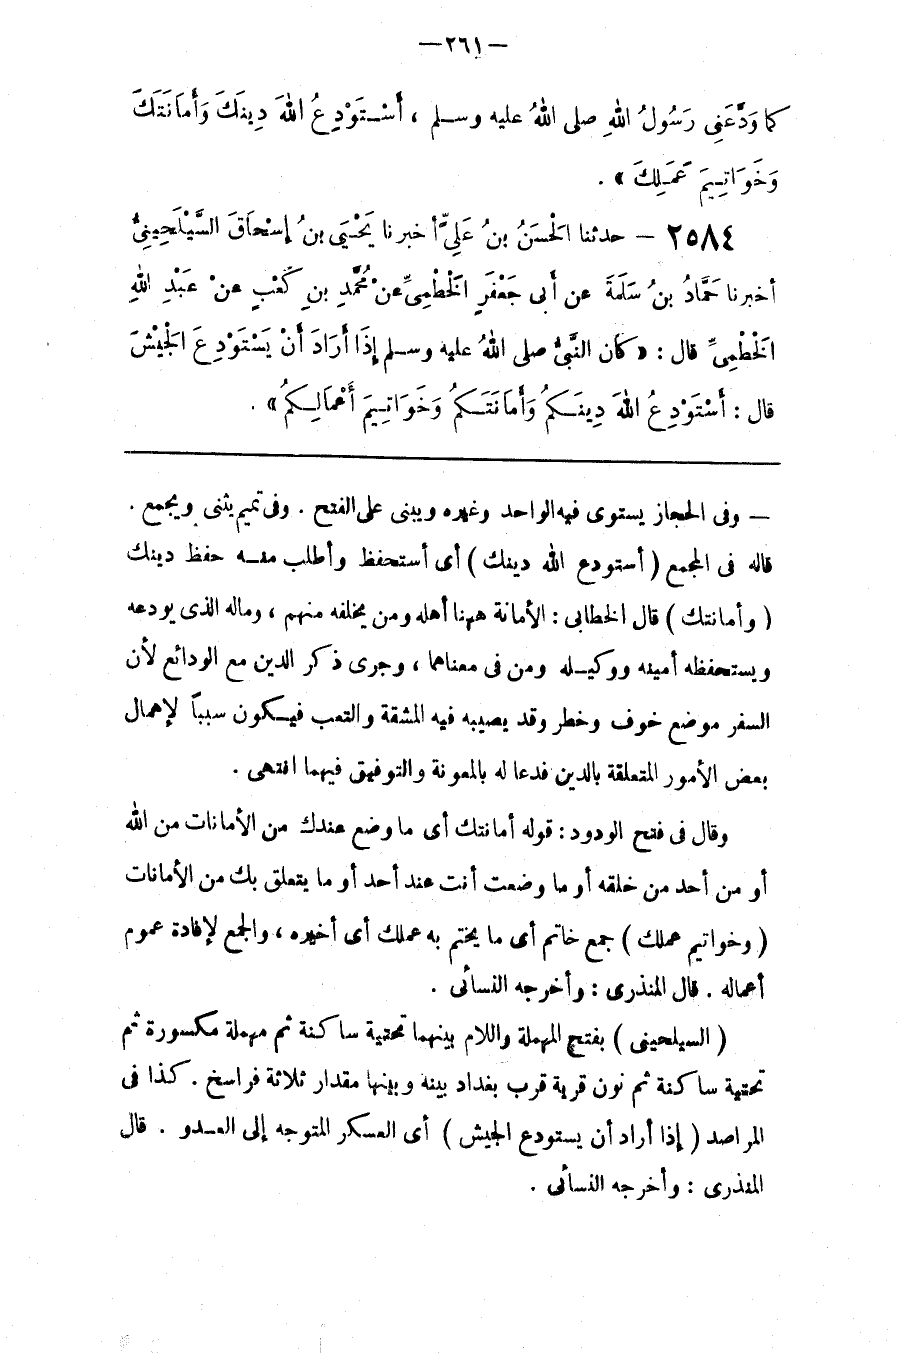 — ٢٦١ —
كما وَدَّعَنِى رَسُولُ اللهِ صلى اللهُ عليه وسلم ، أَسْتَوْدِعُ اللهَ دِينَكَ وَأَمَانَتَكَ
وَخَوَاتِيمَ عَمَلِكَ » .
٢٥٨٤ — حدثنا الْحَسَنُ بنُ عَلِىٍّ أخبرنا يَحْيَى بنُ إِسْحَاقَ السَّيْلَحِينِىُّ
أخبرنا حَمَّادُ بنُ سَلَمَةَ عن أَبى جَعْفَرٍ الْخَطْمِىِّ عنْ مُحَمَّدِ بنِ كَعْبٍ عنْ عَبْدِ اللهِ
الْخَطْمِىِّ قال : « كان النَّبِىُّ صلى اللهُ عليه وسلم إِذَا أَرَادَ أَنْ يَسْتَوْدِعَ الْجَيْشَ
قال : أَسْتَوْدِعُ اللهَ دِينَكُمْ وَأَمَانَتَكُمْ وَخَوَاتِيمَ أَعْمَالِكُمْ » .
— وفى الحجاز يستوى فيه الواحد وغيره ويبنى على الفتح . وفى تميم يثنى ويجمع .
قاله فى المجمع ( أستودع الله دينك ) أى أستحفظ وأطلب منه حفظ دينك
( وأمانتك ) قال الخطابى : الأمانة ههنا أهله ومن يخلفه منهم ، وماله الذى يودعه
ويستحفظه أمينه ووكيله ومن فى معناهما ، وجرى ذكر الدين مع الودائع لأن
السفر موضع خوف وخطر وقد يصيبه فيه المشقة والتعب فيكون سبباً لإهمال
بعض الأمور المتعلقة بالدين فدعا له بالمعونة والتوفيق فيهما انتهى .
وقال فى فتح الودود : قوله أمانتك أى ما وضع عندك من الأمانات من الله
أو من أحد من خلقه أو ما وضعت أنت عند أحد أو ما يتعلق بك من الأمانات
( وخواتيم عملك ) جمع خاتم أى ما يختم به عملك أى أخيره ، والجمع لإفادة عموم
أعماله . قال المنذرى : وأخرجه النسائى .
( السيلحينى ) بفتح المهملة واللام بينهما تحتية ساكنة ثم مهملة مكسورة ثم
تحتية ساكنة ثم نون قرية قرب بغداد بينه وبينها مقدار ثلاثة فراسخ . كذا فى
المراصد ( إذا أراد أن يستودع الجيش ) أى العسكر المتوجه إلى العدو . قال
المنذرى : وأخرجه النسائى .